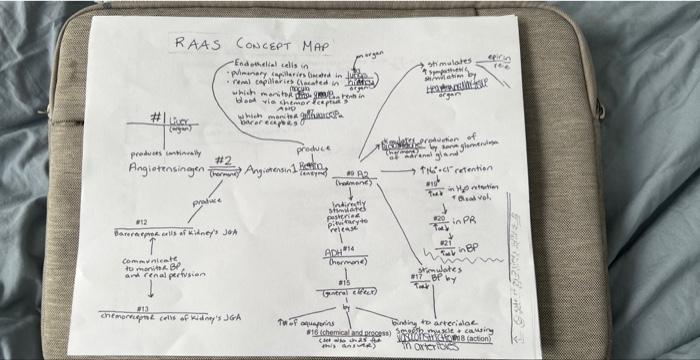 RAAS CONCEPT MAP
Endothelial cells in
organ
• pulmonary capillaries (located in lungs)
• renal capillaries (located in kidneys)
organ
which monitor
blood via chemoreceptors
AND
which monitor
baroreceptors
stimulates
↑ sympathetic
stimulation by
organ
epi
#1 Liver
(organ)
produces continually
Angiotensinogen
#2
(hormone)
Angiotensin1
produce
Renin
(enzyme)
#9 A2
(hormone)
stimulates production of
(hormone)
by zona glomerulosa
of adrenal gland
↑Na⁺+Cl⁻ retention
#19
in H2O retention
↑ Blood vol.
#20
in PR
#21
in BP
produce
#12
Baroreceptor cells of kidney's JGA
communicate
to monitor BP
and renal perfusion
#13
chemoreceptor cells of kidney's JGA
Indirectly
stimulates
posterior
pituitary to
release
ADH #14
(hormone)
#15
(general effect)
by
↑# of aquaporins
#16 (chemical and process)
(see also ch 25 for
this answer)
stimulates
#17 BP by
binding to arteriolar
smooth muscle + causing
vasoconstriction #18 (action)
in arterioles